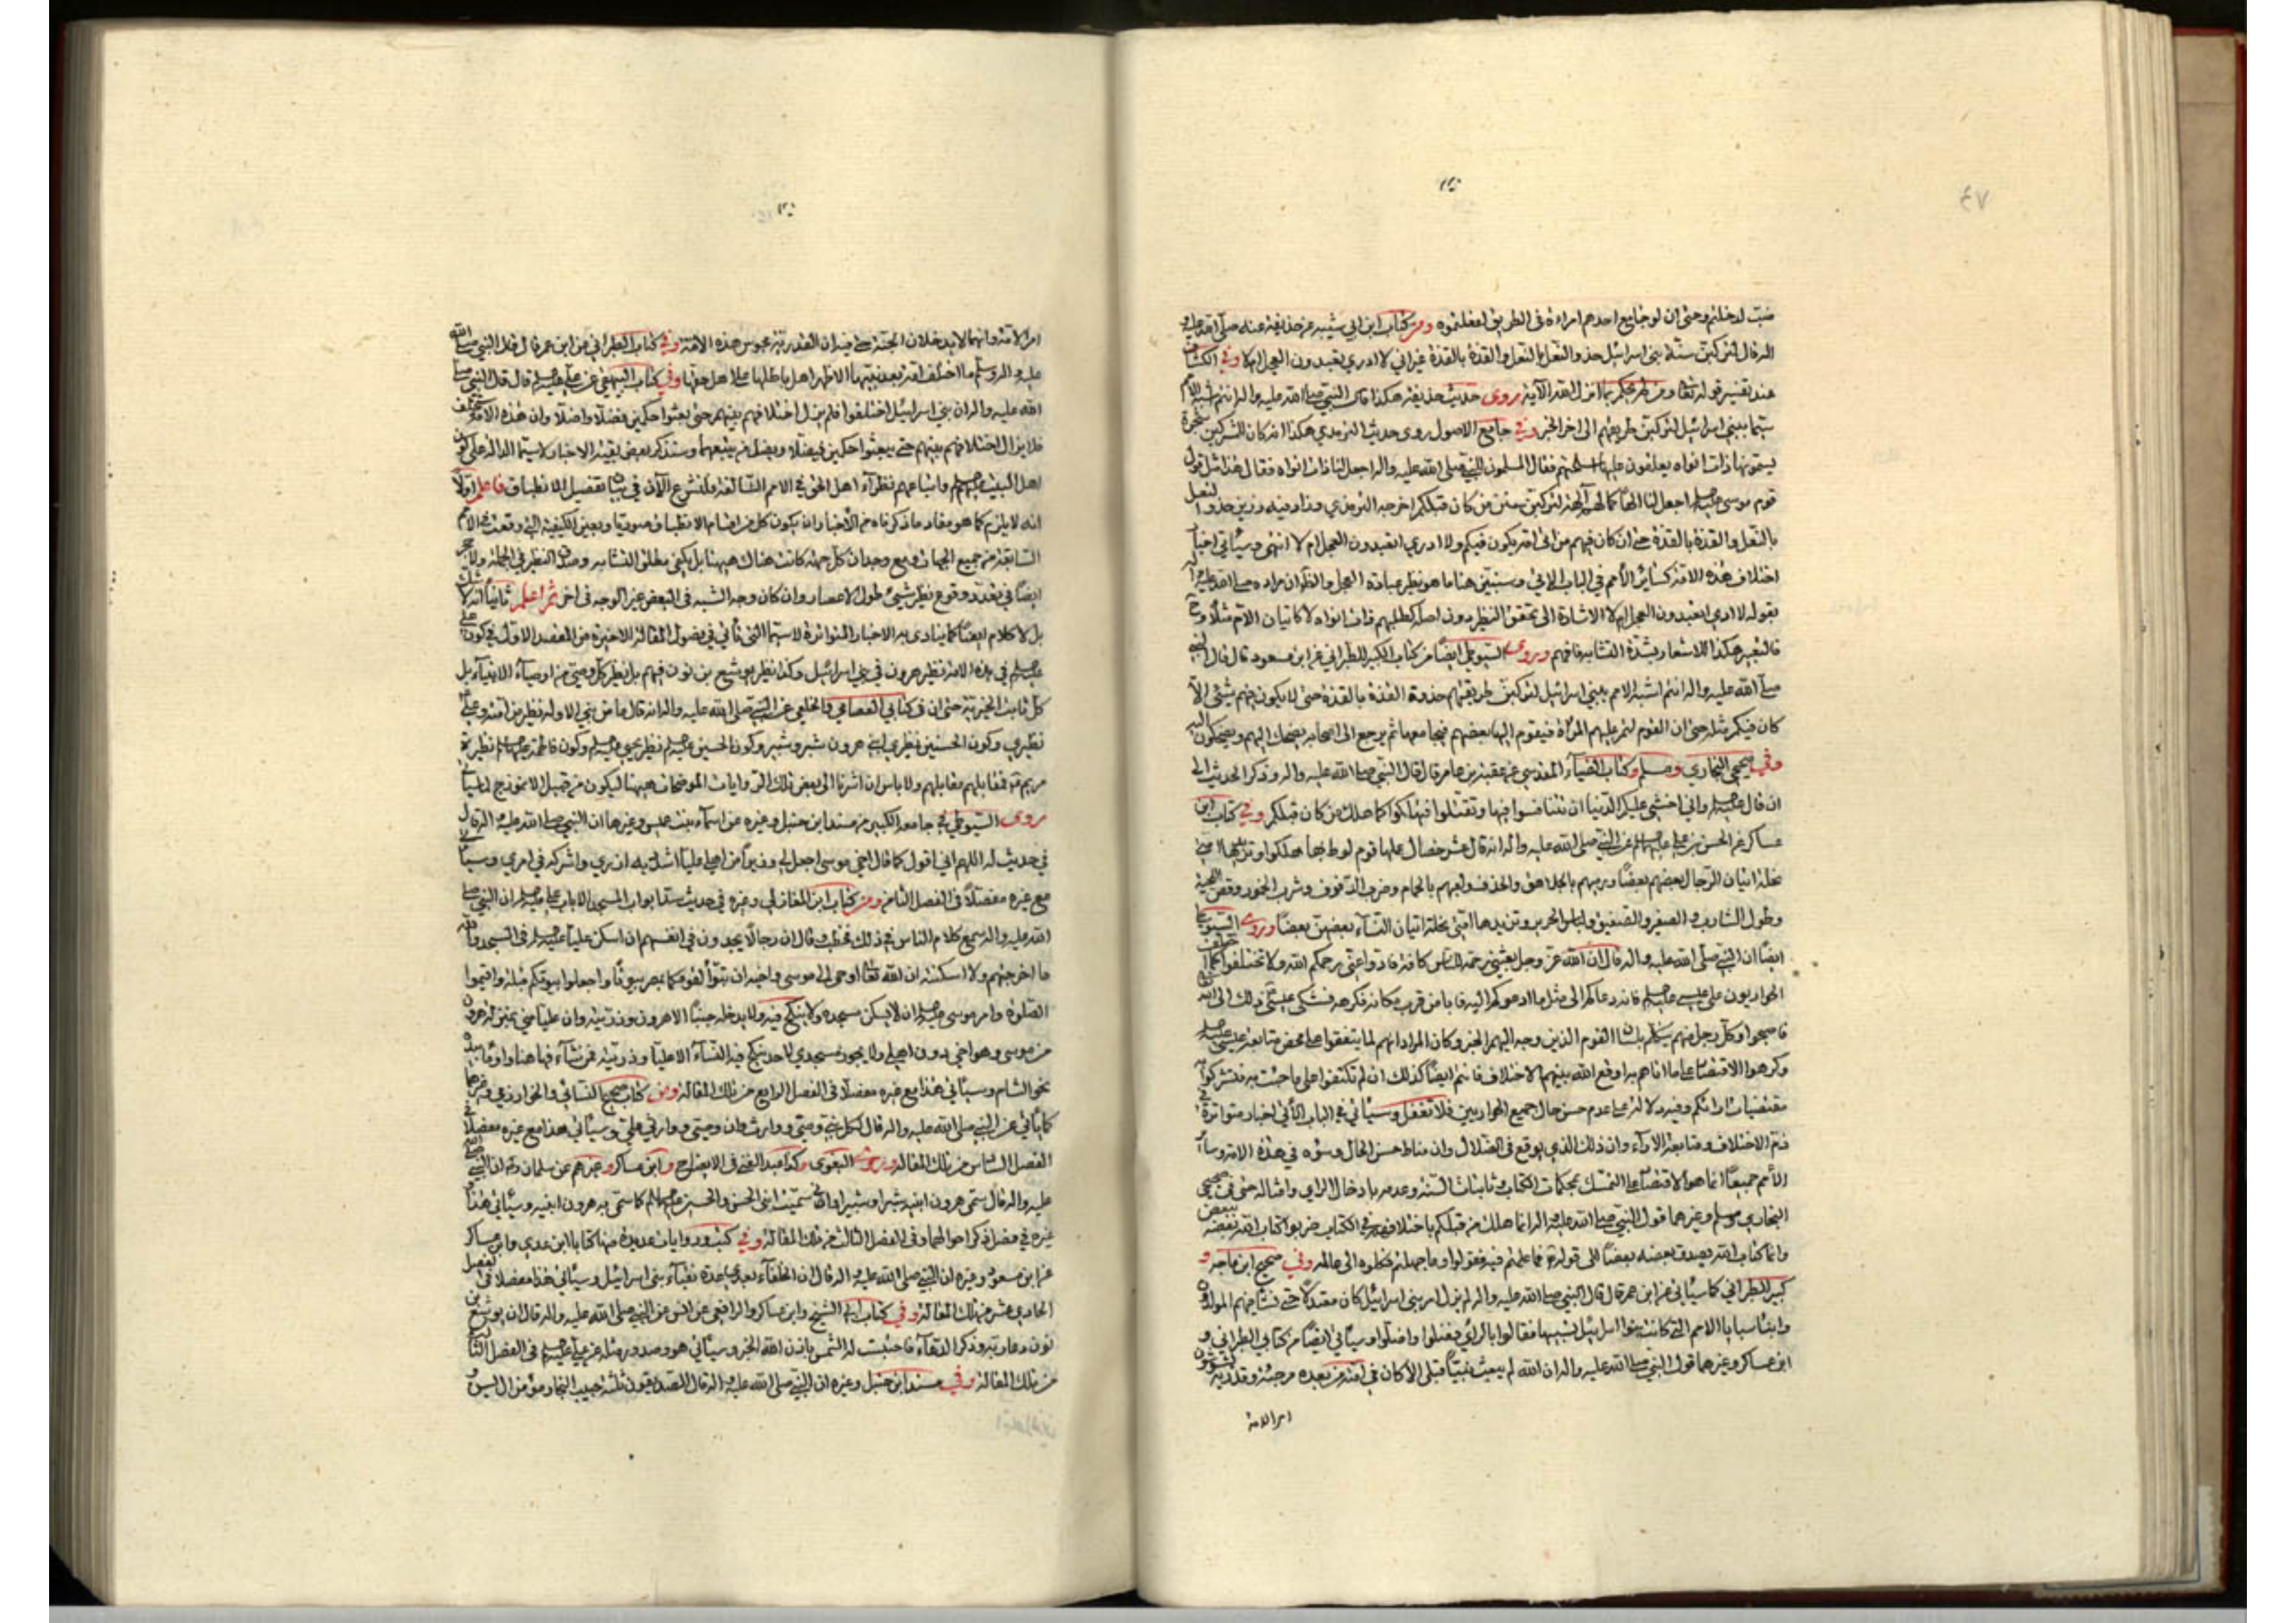 ضبّ لدخلتم وحتى ان لو جامع احدهم امراءة فى الطريق لفعلتموه ومن كتاب ابن ابي شيبه عن حذيفة عنه صلى الله عليه و
اله قال لتركبن سنة بنى اسرائيل حذو النعل بالنعل والقذة بالقذة غير اني لا ادري تعبدون العجل ام لا وفي الكشاف
عند تفسير قوله تعا ومن لم يحكم بما انزل الله الآية روى حديث حذيفة هكذا قال النبي صلى الله عليه واله انتم اشبه الأمم
سيما ببني اسرائيل لتركبن طريقهم الى اخر الخبر وفي جامع الاصول روى حديث الترمذي هكذا انه كان للمشركين شجرة
يسمونها ذات انواه يعلقون عليها اسلحتهم فقال المسلمون للنبي صلى الله عليه واله اجعل لنا ذات انواه فقال هذا مثل قول
قوم موسى اجعل لنا الها كما لهم آلهة لتركبن سنن من كان قبلكم اخرجه الترمذي وزاد فيه رزين حذو النعل
بالنعل والقذة بالقذة حتى ان كان فيهم من اتى امه يكون فيكم ولا ادري اتعبدون العجل ام لا انتهى وسيأتي اخبار
اختلاف هذه الامة كسائر الأمم في الباب الاتي وسنبين هنا ما هو نظير عبادة العجل والظ ان مراده صلى الله عليه واله
بقوله لا ادري اتعبدون العجل ام لا الاشارة الى تحقق النظير دون اصله كطلبهم ذات انواه لا كاتيان الام مثلا وح
فالتعبير هكذا للاشعار بشدة التشابه فافهم وروى السيوطي ايضا من كتاب الكبير للطبراني عن ابن مسعود قال قال النبي
صلى الله عليه واله انتم اشبه الامم ببني اسرائيل لتركبن طريقتهم حذوة القذة بالقذة حتى لا يكون فيهم شئ الا
كان فيكم مثله حتى ان القوم لتمر عليهم المرأة فيقوم اليها بعضهم فيجامعها ثم يرجع الى اصحابه يضحك اليهم ويضحكون اليه
وفي صحيحي البخاري ومسلم وكتاب الضياء المقدسي عن عقبة بن عامر قال قال النبي صلى الله عليه واله وذكر الحديث الى
ان قال واني اخشى عليكم الدنيا ان تتنافسوا فيها وتقتتلوا فتهلكوا كما هلك من كان قبلكم وفي كتاب ابن
عساكر عن الحسن بن علي عن النبي صلى الله عليه واله انه قال عشر خصال عملها قوم لوط بها هلكوا وتزيدها امتي
بخلة اتيان الرجال بعضهم بعضا ورميهم بالجلاهق والخذف ولعبهم بالحمام وضرب الدفوف وشرب الخمور وقص اللحية
وطول الشارب والصفير والتصفيق ولباس الحرير وتزيدها امتي بخلة اتيان النساء بعضهن بعضا وروى السيوطي
ايضا ان النبي صلى الله عليه واله قال ان الله عز وجل بعثني رحمة للناس كافة فادوا عني رحمكم الله ولا تختلفوا كما اختلف
الحواريون على عيسى فانه دعاكم الى مثل ما ادعوكم اليه فاما من قرب مكانه فكرهه فشكى عيسى ذلك الى الله
فاصبحوا وكل رجل منهم يتكلم بلسان القوم الذين وجه اليهم الخبر وكان المراد انهم لما يتفقوا على محض متابعة عيسى
وكرهوا الاقتصار على ما اتاهم به اوقع الله بينهم الاختلاف فانتم ايضا كذلك ان لم تكتفوا على ما جئت به فتشركوا
مقتضيات ارائكم وفيه دلالة على عدم حسن حال جميع الحواريين فلا تغفل وسيأتي في الباب الآتي اخبار متواترة في
ذم الاختلاف ومتابعة الاراء وان ذلك الذي اوقع في الضلال وان مناط حسن الحال وسوءه في هذه الامة وسائر
الأمم جميعا انما هو الاقتصار على التمسك بمحكمات الكتاب وثابتات السنة وعدمه بادخال الراي وامثاله حتى في صحيحي
البخاري ومسلم وغيرهما قول النبي صلى الله عليه واله انما هلك من قبلكم باختلافهم في الكتاب ضربوا كتاب الله بعضه ببعض
وانما كتاب الله يصدق بعضه بعضا الى قوله فما علمتم فيه فقولوا وما جهلتم فكلوه الى عالمه وفي صحيح ابن ماجه و
كبير الطبراني كما سيأتي عن ابن عمر قال قال النبي صلى الله عليه واله لم يزل امر بني اسرائيل كان معتدلا حتى نشأ فيهم المولدون
وابناء سبايا الامم التي كانت بنو اسرائيل تسبيها فقالوا بالرأي فضلوا واضلوا وسيأتي ايضا من كتابي الطبراني و
ابن عساكر وغيرهما قول النبي صلى الله عليه واله ان الله لم يبعث نبيا قبلي الا كان في امته من بعده مرجئة وقدرية يشوشون
امر الامة
امر الامة وانهما لا يدخلان الجنة ان القدرية مجوس هذه الامة وفي كتاب الطبراني عن ابن عمر قال قال النبي صلى الله
عليه واله وسلم ما اختلف امة بعد نبيها الا ظهر اهل باطلها على اهل حقها وفي كتاب البيهقي عن علي قال قال النبي صلى
الله عليه واله ان بني اسرائيل اختلفوا فلم يزل اختلافهم بينهم حتى بعثوا حكمين فضلا واضلا وان هذه الامة ستختلف
فلا يزال اختلافهم بينهم حتى يبعثوا حكمين فيضلا ويضل من يتبعهما وسنذكر بعض بقية الاخبار لاسيما الدالة على كون
اهل البيت واتباعهم نظراء اهل الحق في الامم السالفة ولنشرع الآن في بيان تفصيل الانطباق فاعلم اولا
انه لا يلزم كما هو مفاد ما ذكرناه من الأخبار ان يكون كل من اقسام الانطباق صوريا وبعين الكيفية التي وقعت في الامم
السابقة من جميع الجهات ومع وجدان كل جهة كانت هناك ههنا بل يكفي مطلق التشابه وصدق النظير في الجملة ولا حجر
ايضا في تعدد وقوع نظير شئ طول الاعصار وان كان وجه الشبه في البعض غير الوجه في اخر ثم اعلم ثانيا انه لا شك
بل لا كلام ايضا كما ينادى به الاخبار المتواترة لاسيما التي تأتي في فصول المقالة الاخيرة من المقصد الاول في كون علي
في هذه الامة نظير هرون في بني اسرائيل وكذا نظير يوشع بن نون فيهم بل نظير كل وصي من اوصياء الانبياء بل
كل ثابت الخيرية حتى ان في كتابي القضاعي والخلعي عن النبي صلى الله عليه واله انه قال ما من نبي الا وله نظير من امته وعلي
نظيري وكون الحسنين نظيري ابني هرون شبر وشبير وكون الحسين نظير يحيى وكون فاطمة نظيرة
مريم فمقابلهم مقابلهم ولا باس ان اشرنا الى بعض تلك الروايات الموضحات ههنا ليكون من قبيل الانموذج لما سيأتي
روى السيوطي في جامعه الكبير من مسند ابن حنبل وغيره عن اسماء بنت عميس وغيرها ان النبي صلى الله عليه واله قال
في حديث له اللهم اني اقول كما قال اخي موسى اجعل لي وزيرا من اهلي عليا اشدد به ازري واشركه في امري وسيأتي
مع غيره مفصلا في الفصل الثامن ومن كتاب ابن المغازلي وغيره في حديث سد ابواب المسجد الا باب علي ان النبي صلى
الله عليه واله سمع كلام الناس في ذلك فخطب وقال ان رجالا يجدون في انفسهم ان اسكن عليا في المسجد والله
ما اخرجتهم ولا اسكنته ان الله تعا اوحى الى موسى واخيه ان تبوأ لقومكما بمصر بيوتا واجعلوا بيوتكم قبلة واقيموا
الصلوة وامر موسى ان لا يسكن مسجده ولا ينكح فيه ولا يدخله جنبا الا هرون وذريته وان عليا مني بمنزلة هرون
من موسى وهو اخي دون اهلي ولا يجوز مسجدي لاحد ينكح فيه النساء الا عليا وذريته فمن شاء فهاهنا واومأ بيده
نحو الشام وسيأتي هذا مع غيره مفصلا في الفصل الرابع من تلك المقالة ومن كتاب صحيح النسائي والخوارزمي وغيرهما
كما يأتي عن النبي صلى الله عليه واله قال لكل نبي وصي ووارث وان وصيي ووارثي علي وسيأتي هذا مع غيره مفصلا في
الفصل السادس من تلك المقالة وروى البغوي وكذا عبد الغني في الايضاح وابن عساكر وغيرهم عن سلمان ان النبي صلى الله
عليه واله قال سمى هرون ابنيه شبرا وشبيرا واني سميت ابني الحسن والحسين كما سمى به هرون ابنيه وسيأتي هذا مع
غيره في فصل ذكر احوالهما وفي الفصل الثالث من تلك المقالة وفي كتب وروايات عديدة منها كتابا ابن عدي وابن عساكر
عن ابن مسعود وغيره ان النبي صلى الله عليه واله قال ان الخلفاء بعدي عدة نقباء بني اسرائيل وسيأتي هذا مفصلا في الفصل
الحادي عشر من تلك المقالة وفي كتاب ابي الشيخ وابن عساكر والرافعي عن انس عن النبي صلى الله عليه واله قال ان يوشع بن
نون دعا ربه وذكر الدعاء فاحتبست له الشمس باذن الله الخبر وسيأتي هو وصدور مثله عن علي في الفصل الثاني
من تلك المقالة وفي مسند ابن حنبل وغيره ان النبي صلى الله عليه واله قال الصديقون ثلثة حبيب النجار مؤمن ال يس و